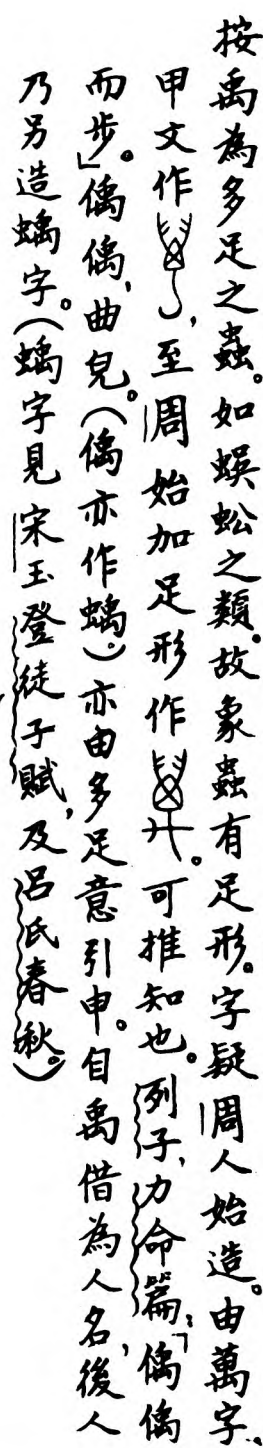 按禹為多足之蟲。如蜈蚣之類。故象蟲有足形。字疑周人始造。由萬字。
甲文作，至周始加足形作。可推知也。列子，力命篇：「偊偊
而步。」偊偊，曲皃。（偊亦作蝺。）亦由多足意引申。自禹借為人名，後人
乃另造蝺字。（蝺字見宋玉登徒子賦，及呂氏春秋。）